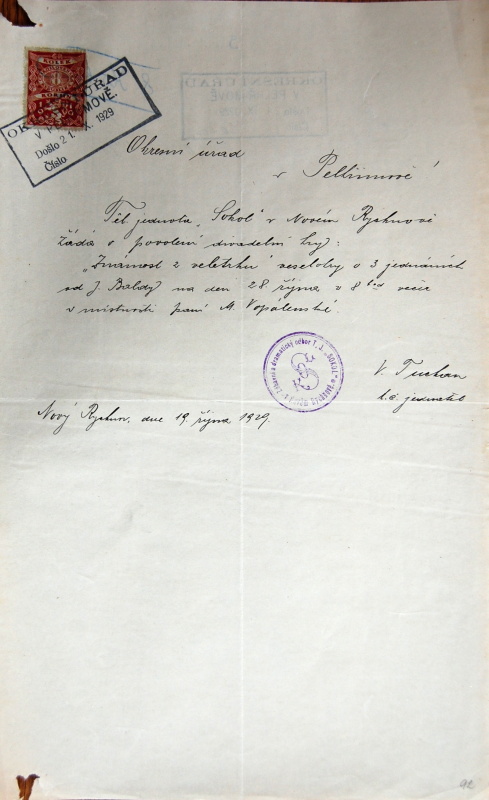 KOLEK
OKRESNÍ ÚŘAD
V PELHŘIMOVĚ.
Došlo 21. X. 1929
Číslo
Okresní úřad
v Pelhřimově
Těl. jednota „Sokol" v Novém Rychnově
žádá o povolení divadelní hry:
„Známost z veletrhu" veselohry o 3 jednáních
od J. Baldy na den 28 října v 8 hod večer
v místnosti paní M. Vopálenské.
dramatický odbor T. J. „SOKOL"
V. Tuchan
t.č. jednatel
Nový Rychnov, dne 19. října 1929.
92